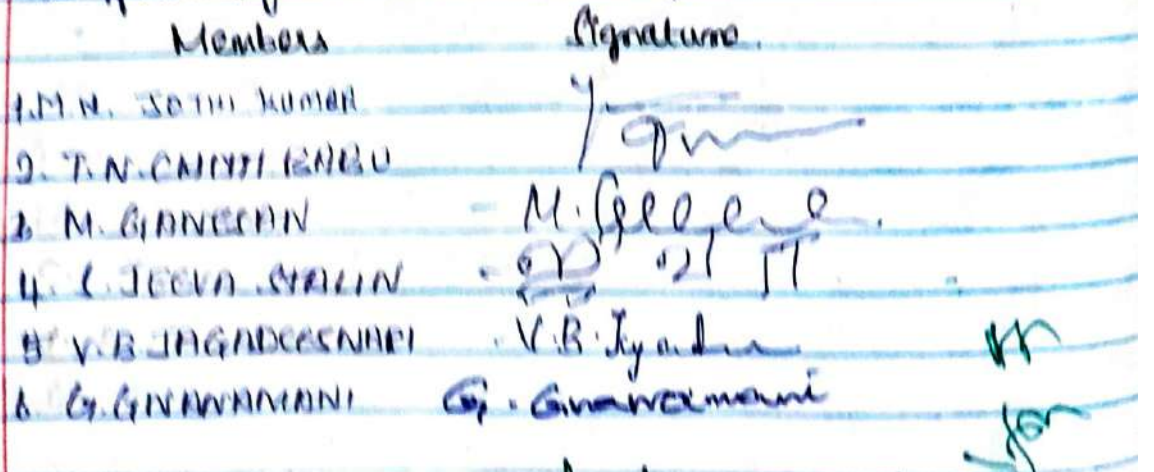 Members Signature.
1. M.N. JOTHI KUMAR
2. T.N. CHITTI BABU
3 M. GANESAN - M. Ganesan.
4. S. JEEVA STALIN - ஜீவா
5 V.B JAGADEESWARI - V.B. Jagadee
6 G. GNANAMANI G. Gnanamani